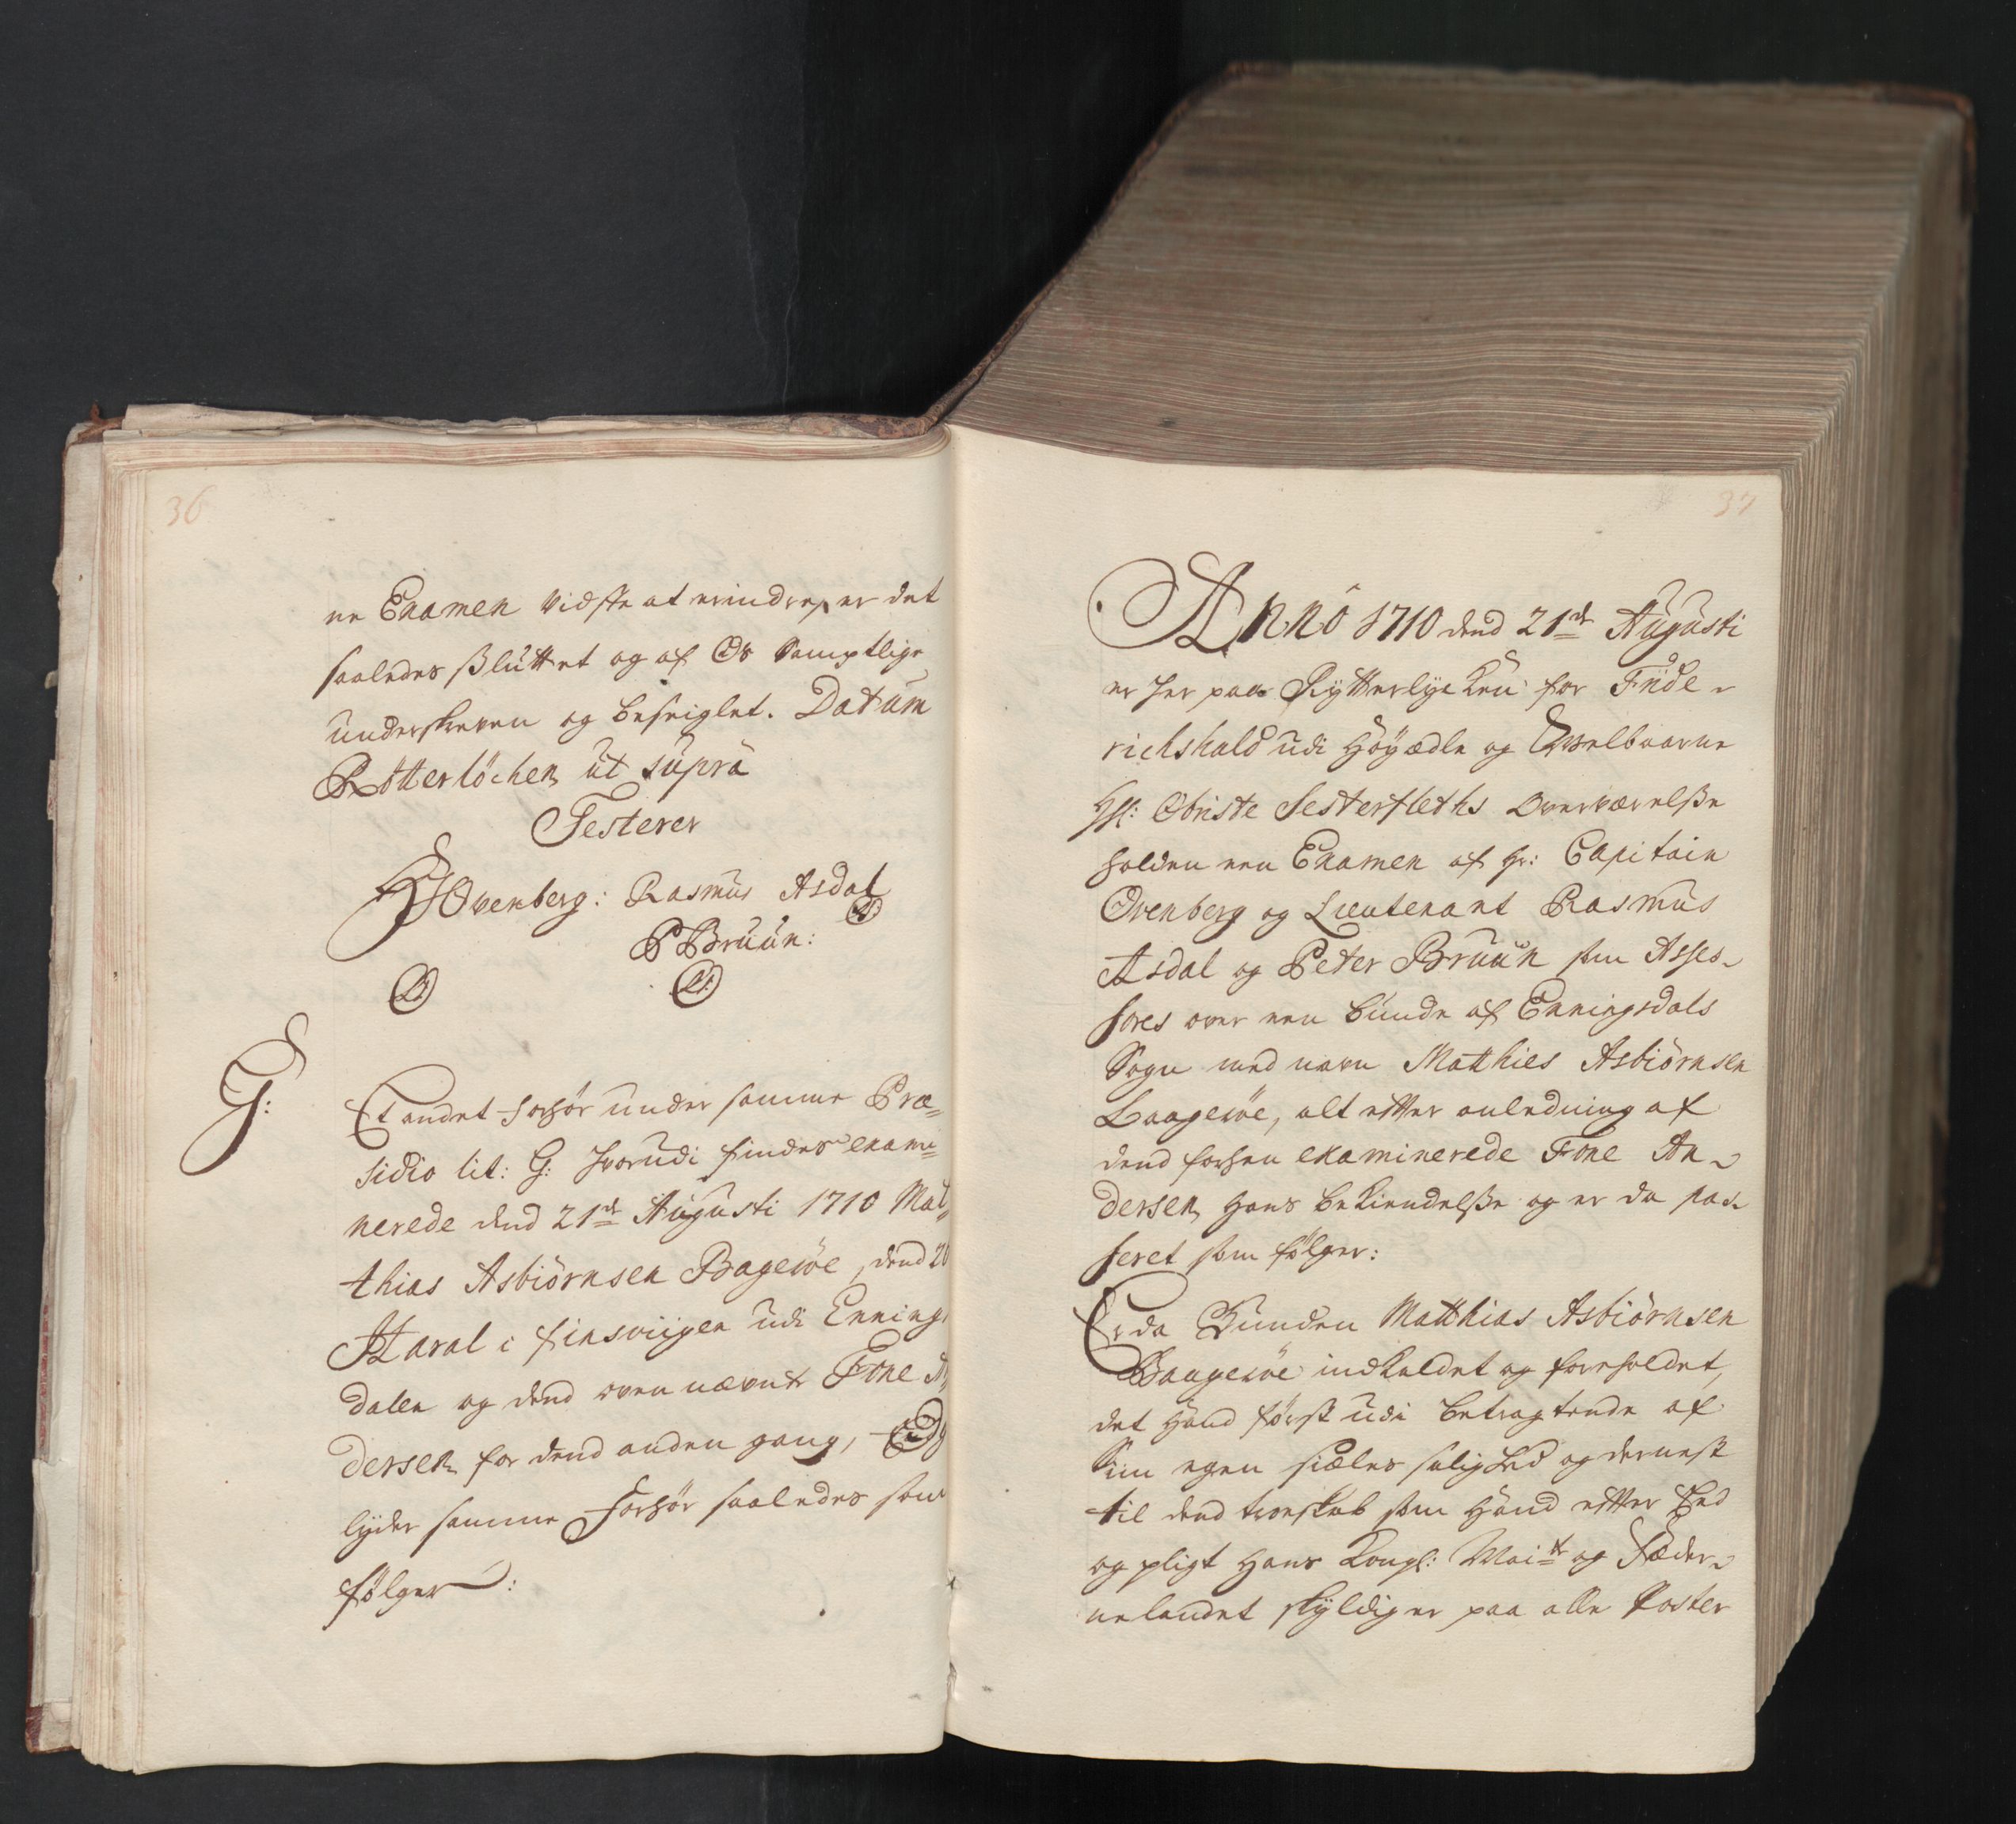 36
ne Examen vidste at erindre, er det
saaledes Sluttet og af Os Samptlige
underskreven og beseiglet. Datum
Rötterlöchen ut supra
Testerer
Ovenberg: Rasmus Asdal
PBruun:
G:
Et andet forhör under samme Præ=
sidio lit: G: hvorudi findes exami=
nerede dend 21de Augusti 1710 Mat=
thias Asbiörnsen Bageröe, dend
Haral i finsviigen udi Enning
dalen og dend ovennævnte Tone
dersen for dend anden gang,
lyder samme forhör saaledes som
fölger:
37
Anno 1710 dend 21de Augusti
er her paa for Fride-
richshald udi Höyædle og Welbaarne
Hr: Obriste Sesterfleths Overværelsse
holden een Examen af Hr: Capitain
Ovenberg og Lieutenant Rasmus
Asdal og Peter Bruun som Asses-
sores over een bunde af Enningdals
Sogn med navn Matthies Asbiörnsen
Baageröe, alt efter anledning af
dend forhen examinerede Tone An-
dersen hans bekiendelsse og er da pas-
seret som fölger:
Er da Bunden Matthias Asbiörnsen
Baageröe indkaldet og foreholdet,
det hand först udi betragtende af
Siin egen siæles salighed og dernest
til dend troeskab som hand efter Eed
og pligt Hans Kongl: Mait og Fæder-
nelandet skyldig er paa alle Poster